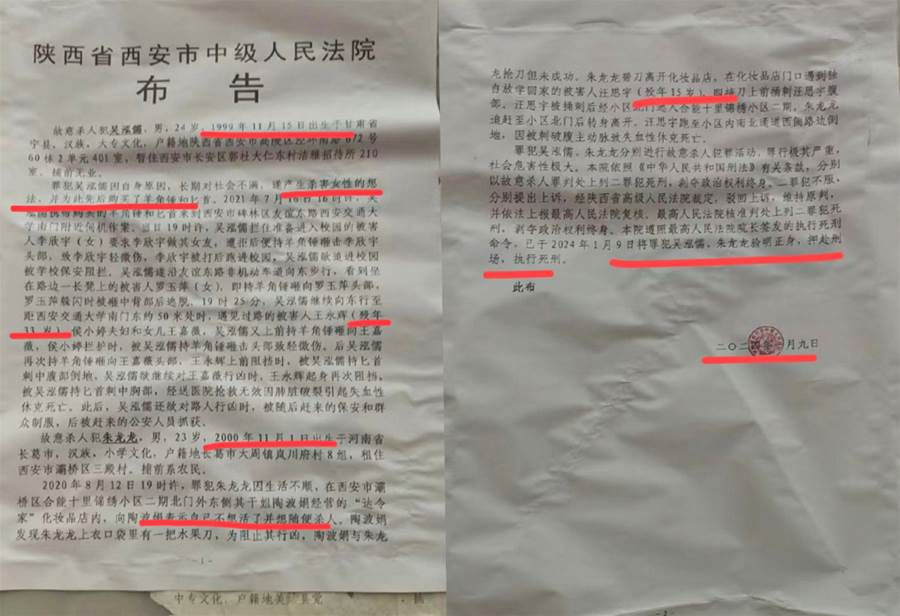 陕西省西安市中级人民法院
布 告
故意杀人犯吴泓儒，男，24岁，1999年11月15日出生于甘肃省
宁县，汉族，大专文化，户籍地陕西省西安市高陵区泾环南路672号
60栋2单元401室，暂住西安市长安区郭杜大仁东村洁雅招待所210
室。捕前无业。
罪犯吴泓儒因自身原因，长期对社会不满，遂产生杀害女性的想
法，并为此先后购买了羊角锤和匕首。2021年7月16日18时许，吴
泓儒携带购买的羊角锤和匕首来到西安市碑林区友谊东路西安交通大
学南门附近伺机作案。当日19时许，吴泓儒拦住准备进入校园的被害
人李欣宇（女）要求李欣宇做其女友，遭拒后便持羊角锤砸击李欣宇
头部，致李欣宇轻微伤，李欣宇被打后跑进校园，吴泓儒欲追进校园
被学校保安阻拦。吴泓儒遂沿友谊东路非机动车道向东步行，看到坐
在路边一长凳上的被害人罗玉萍（女），即持羊角锤砸向罗玉萍头部，
罗玉萍躲闪时被砸中背部后逃脱。19时25分，吴泓儒继续向东行至
距西安交通大学南门东约50米处时，遇见过路的被害人王永辉（殁年
33岁）、侯小婷夫妇和女儿王嘉薇，吴泓儒又上前持羊角锤砸向王嘉
薇，侯小婷拦护时，被吴泓儒持羊角锤砸击头部致轻微伤。后吴泓儒
再次持羊角锤砸向王嘉薇头部，王永辉上前阻挡时，被吴泓儒持匕首
刺中腹部倒地。吴泓儒欲继续对王嘉薇行凶时，王永辉起身再次阻挡，
被吴泓儒持匕首刺中胸部，经送医院抢救无效因肺脏破裂引起失血性
休克死亡。此后，吴泓儒还欲对路人行凶时，被随后赶来的保安和群
众制服，后被赶来的公安人员抓获。
故意杀人犯朱龙龙，男，23岁，2000年11月1日出生于河南省
长葛市，汉族，小学文化，户籍地长葛市大周镇岚川府村8组，租住
西安市灞桥区三殿村。捕前系农民。
2020年8月12日19时许，罪犯朱龙龙因生活不顺，在西安市灞
桥区合能十里锦绣小区二期北门外东侧其干姐陶波娟经营的“达令
家”化妆品店内，向陶波娟表示自己不想活了并想随便杀人。陶波娟
发现朱龙龙上衣口袋里有一把水果刀，为阻止其行凶，陶波娟与朱龙
- 1 -
中专文化，户籍地美
龙抢刀但未成功。朱龙龙带刀离开化妆品店。在化妆品店门口遇到独
自放学回家的被害人汪思宇（殁年15岁），即持刀上前捅刺汪思宇腹
部。汪思宇被捅刺后经小区北门进入合能十里锦绣小区二期，朱龙龙
追赶至小区北门后转身离开。汪思宇跑至小区内南北通道西侧路边倒
地，因被刺破腹主动脉致失血性休克死亡。
罪犯吴泓儒、朱龙龙分别进行故意杀人犯罪活动，罪行极其严重，
社会危害性极大。本院依照《中华人民共和国刑法》有关条款，分别
以故意杀人罪判处上列二罪犯死刑，剥夺政治权利终身。二罪犯不服，
分别提出上诉，经陕西省高级人民法院裁定，驳回上诉，维持原判，
并依法上报最高人民法院复核。最高人民法院核准判处上列二罪犯死
刑，剥夺政治权利终身。本院遵照最高人民法院院长签发的执行死刑
命令，已于2024年1月9日将罪犯吴泓儒、朱龙龙验明正身，押赴刑
场，执行死刑。
此布
二〇二四年一月九日